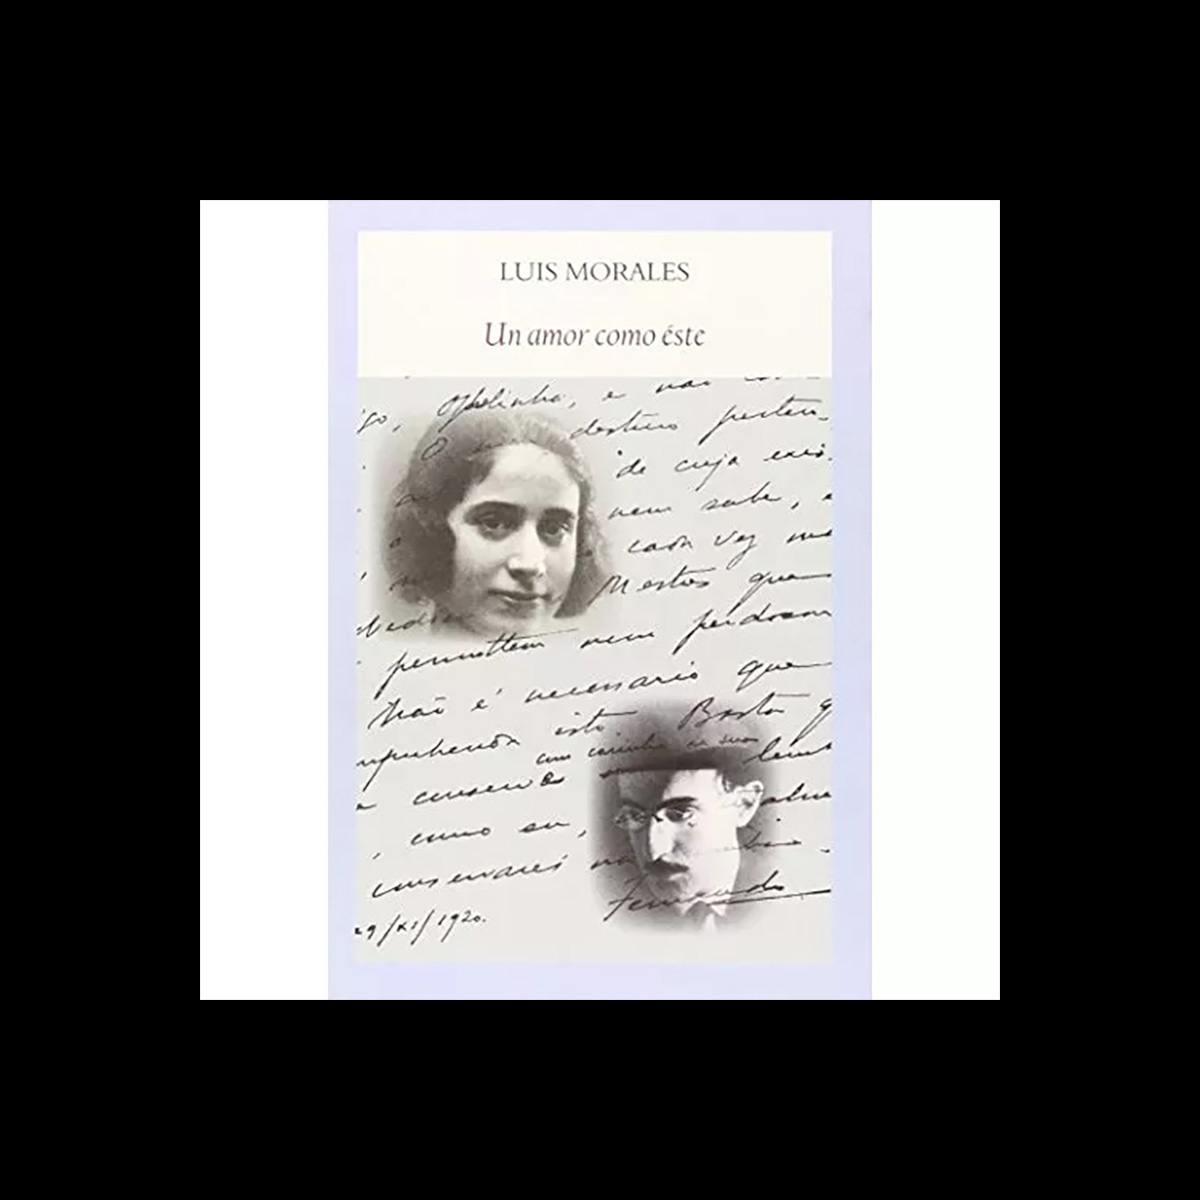 LUIS MORALES
Un amor como éste
go, Ophelinha, e não
O destino perten-
de cuja exis-
nem sabe, e
cada vez
Mestres que
permittem nem perdoam
Não é necessario que
isto. Basta q
com carinho na sua
conserve lem
como eu,
conservarei na
Fernando
29/XI/1920.